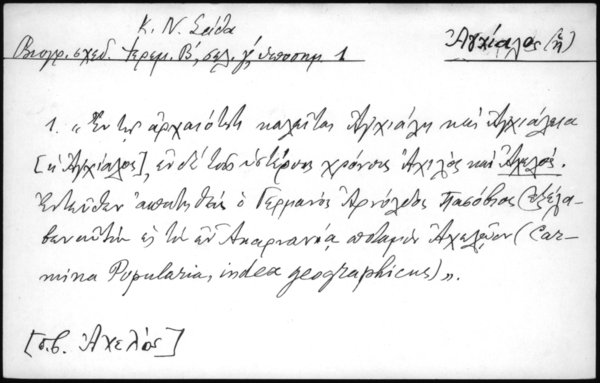 Κ. Ν. Σάθα
Βιογρ. σχεδ. Ἱερεμ. Β΄, σελ. γ΄, ὑποσημ. 1
Ἀγχίαλος (ἡ)
1. «Ἐν τῇ ἀρχαιότητι καλεῖται Ἀγχιάλη καὶ Ἀγχιάλεια
[ἡ Ἀγχίαλος], ἐν δὲ τοῖς ὑστέροις χρόνοις Ἀχιλὸς καὶ Ἀχελός.
Ἐντεῦθεν ἀπατηθεὶς ὁ Γερμανὸς Ἀρνόλδος Πασόβιος ἐξέλα-
βεν αὐτὴν ὡς τὸν ἐν Ἀκαρνανίᾳ ποταμὸν Ἀχελῷον (Car-
mina Popularia, index geographicus)».
[π.β. Ἀχελὸς]